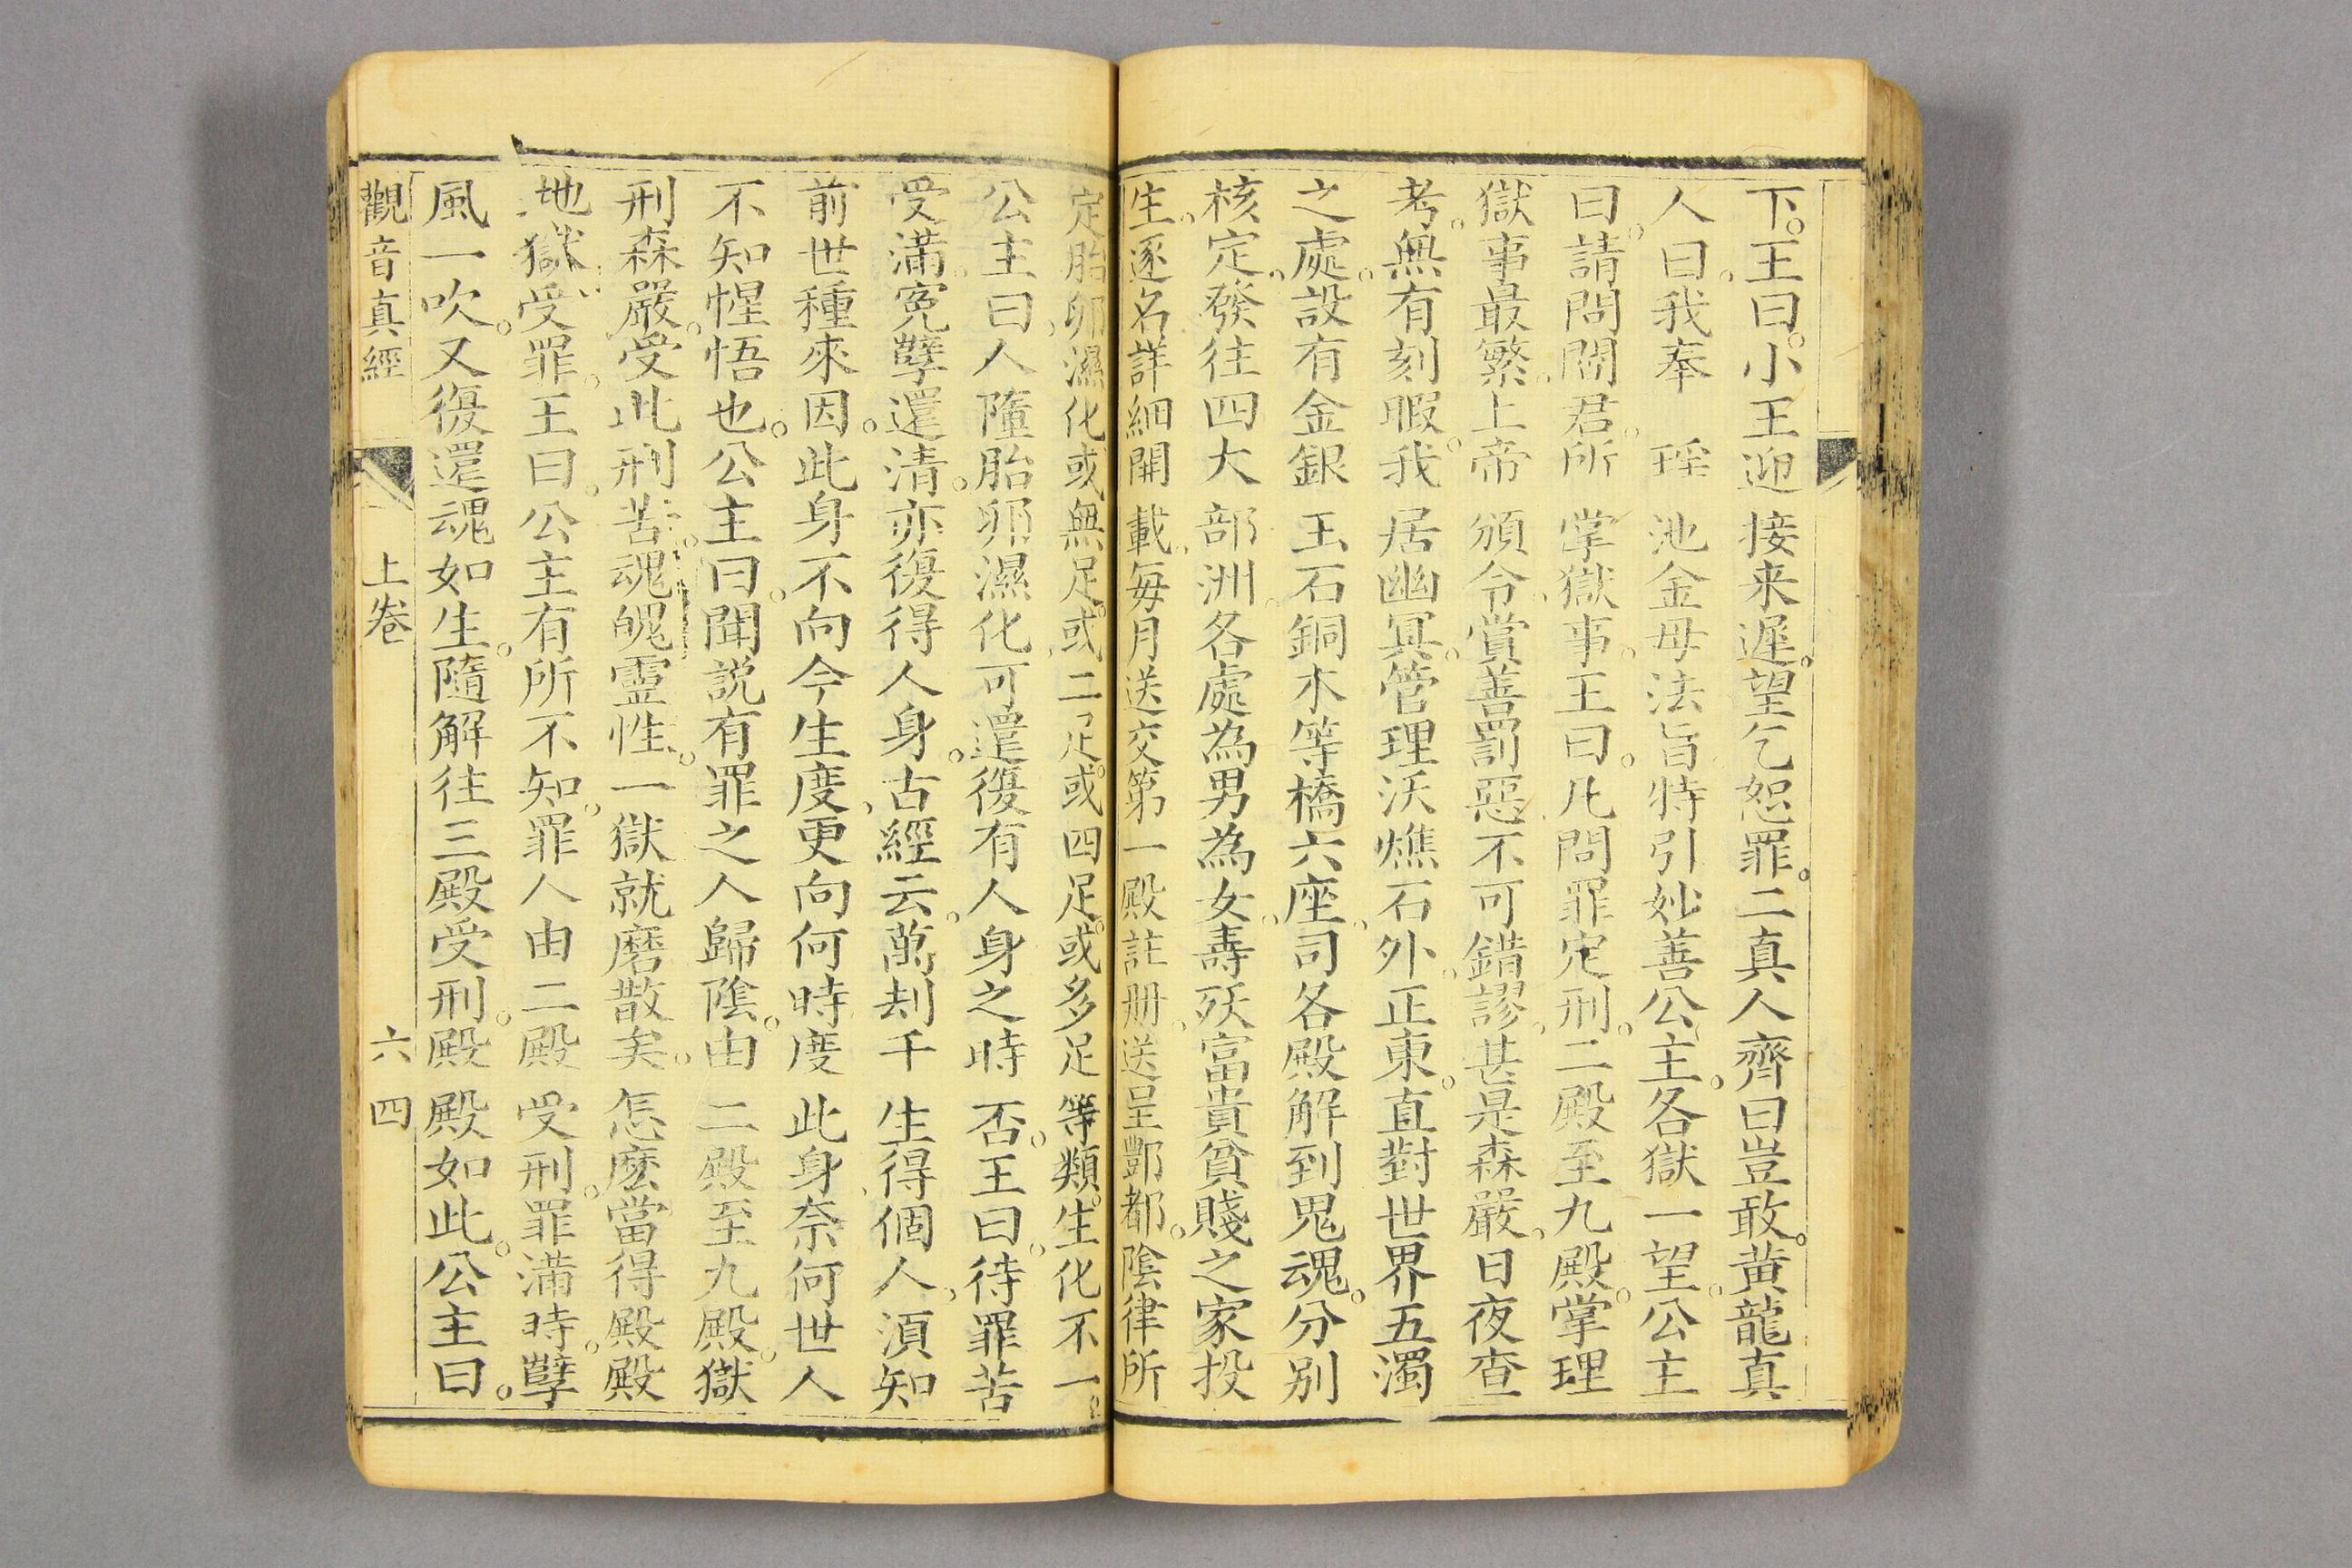 下。王曰。小王迎接来遲。望乞恕罪。二真人齊曰豈敢。黄龍真
人曰。我奉 瑶池金母法旨。特引妙善公主。各獄一望。公主
曰。請問閻君。所掌獄事。王曰。凡問罪定刑。二殿至九殿。掌理
獄事最繁。上帝頒令。賞善罰惡。不可錯謬。甚是森嚴。日夜查
考。無有刻暇。我居幽冥。管理沃燋石外。正東。直對世界五濁
之處。設有金銀玉石銅木等橋六座。司各殿解到鬼魂。分別
核定。發徃四大部洲。各處為男為女。壽殀富貴貧賤之家投
生。逐名詳細開載。每月送交第一殿註册。送呈酆都。陰律所
定胎卵濕化或無足。或二足。或四足。或多足等類。生化不一。
公主曰。人墮胎卵濕化。可還復有人身之時否。王曰。待罪苦
受滿。寃孽還清。亦復得人身。古經云。萬刦千生得個人。須知
前世種來因。此身不向今生度。更向何時度此身。奈何世人
不知惺悟也。公主曰。聞説有罪之人歸陰。由二殿至九殿。獄
刑森嚴。受此刑苦。魂魄靈性。一獄就磨散矣。怎麽當得殿殿
地獄。受罪。王曰。公主有所不知。罪人由二殿受刑。罪滿時。孽
風一吹。又復還魂如生。隨解徃三殿受刑。殿殿如此。公主曰。
觀音真經 上卷 六四